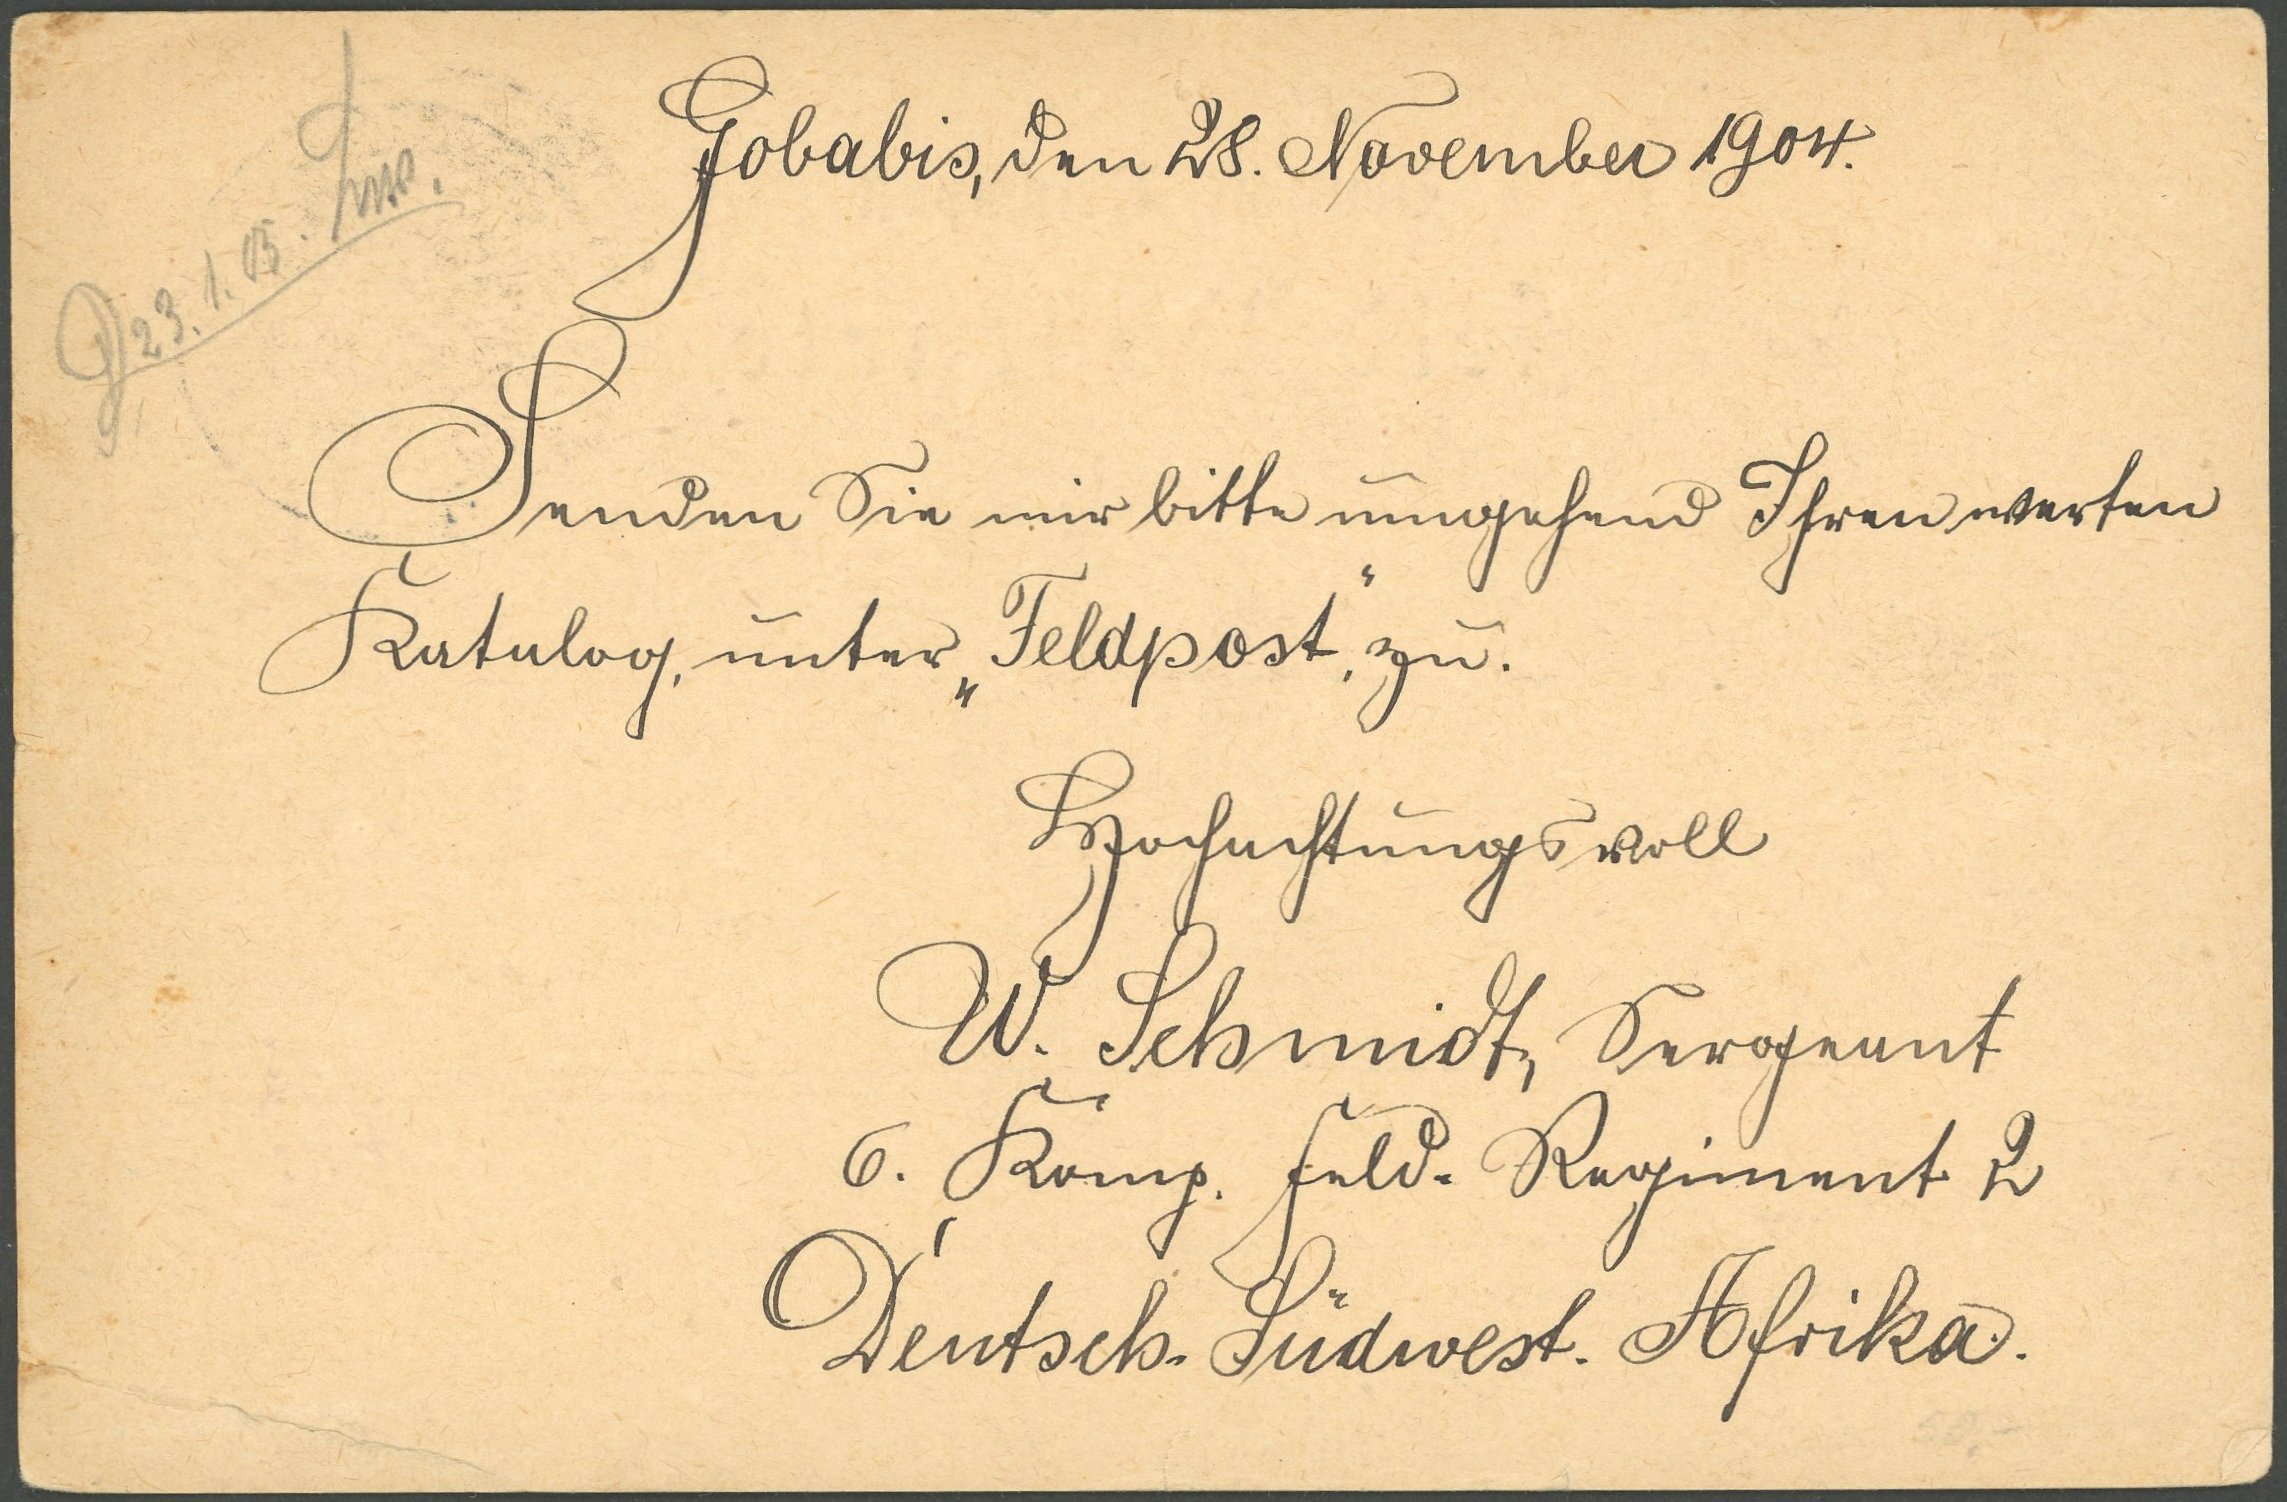 Gobabis, den 28. November 1904.
23. 1. 05.
Senden Sie mir bitte umgehend Ihren werten
Katalog, unter „Feldpost“, zu.
Hochachtungsvoll
W. Schmidt, Sergeant
6. Komp. Feld-Regiment 2
Deutsch-Südwest-Afrika.